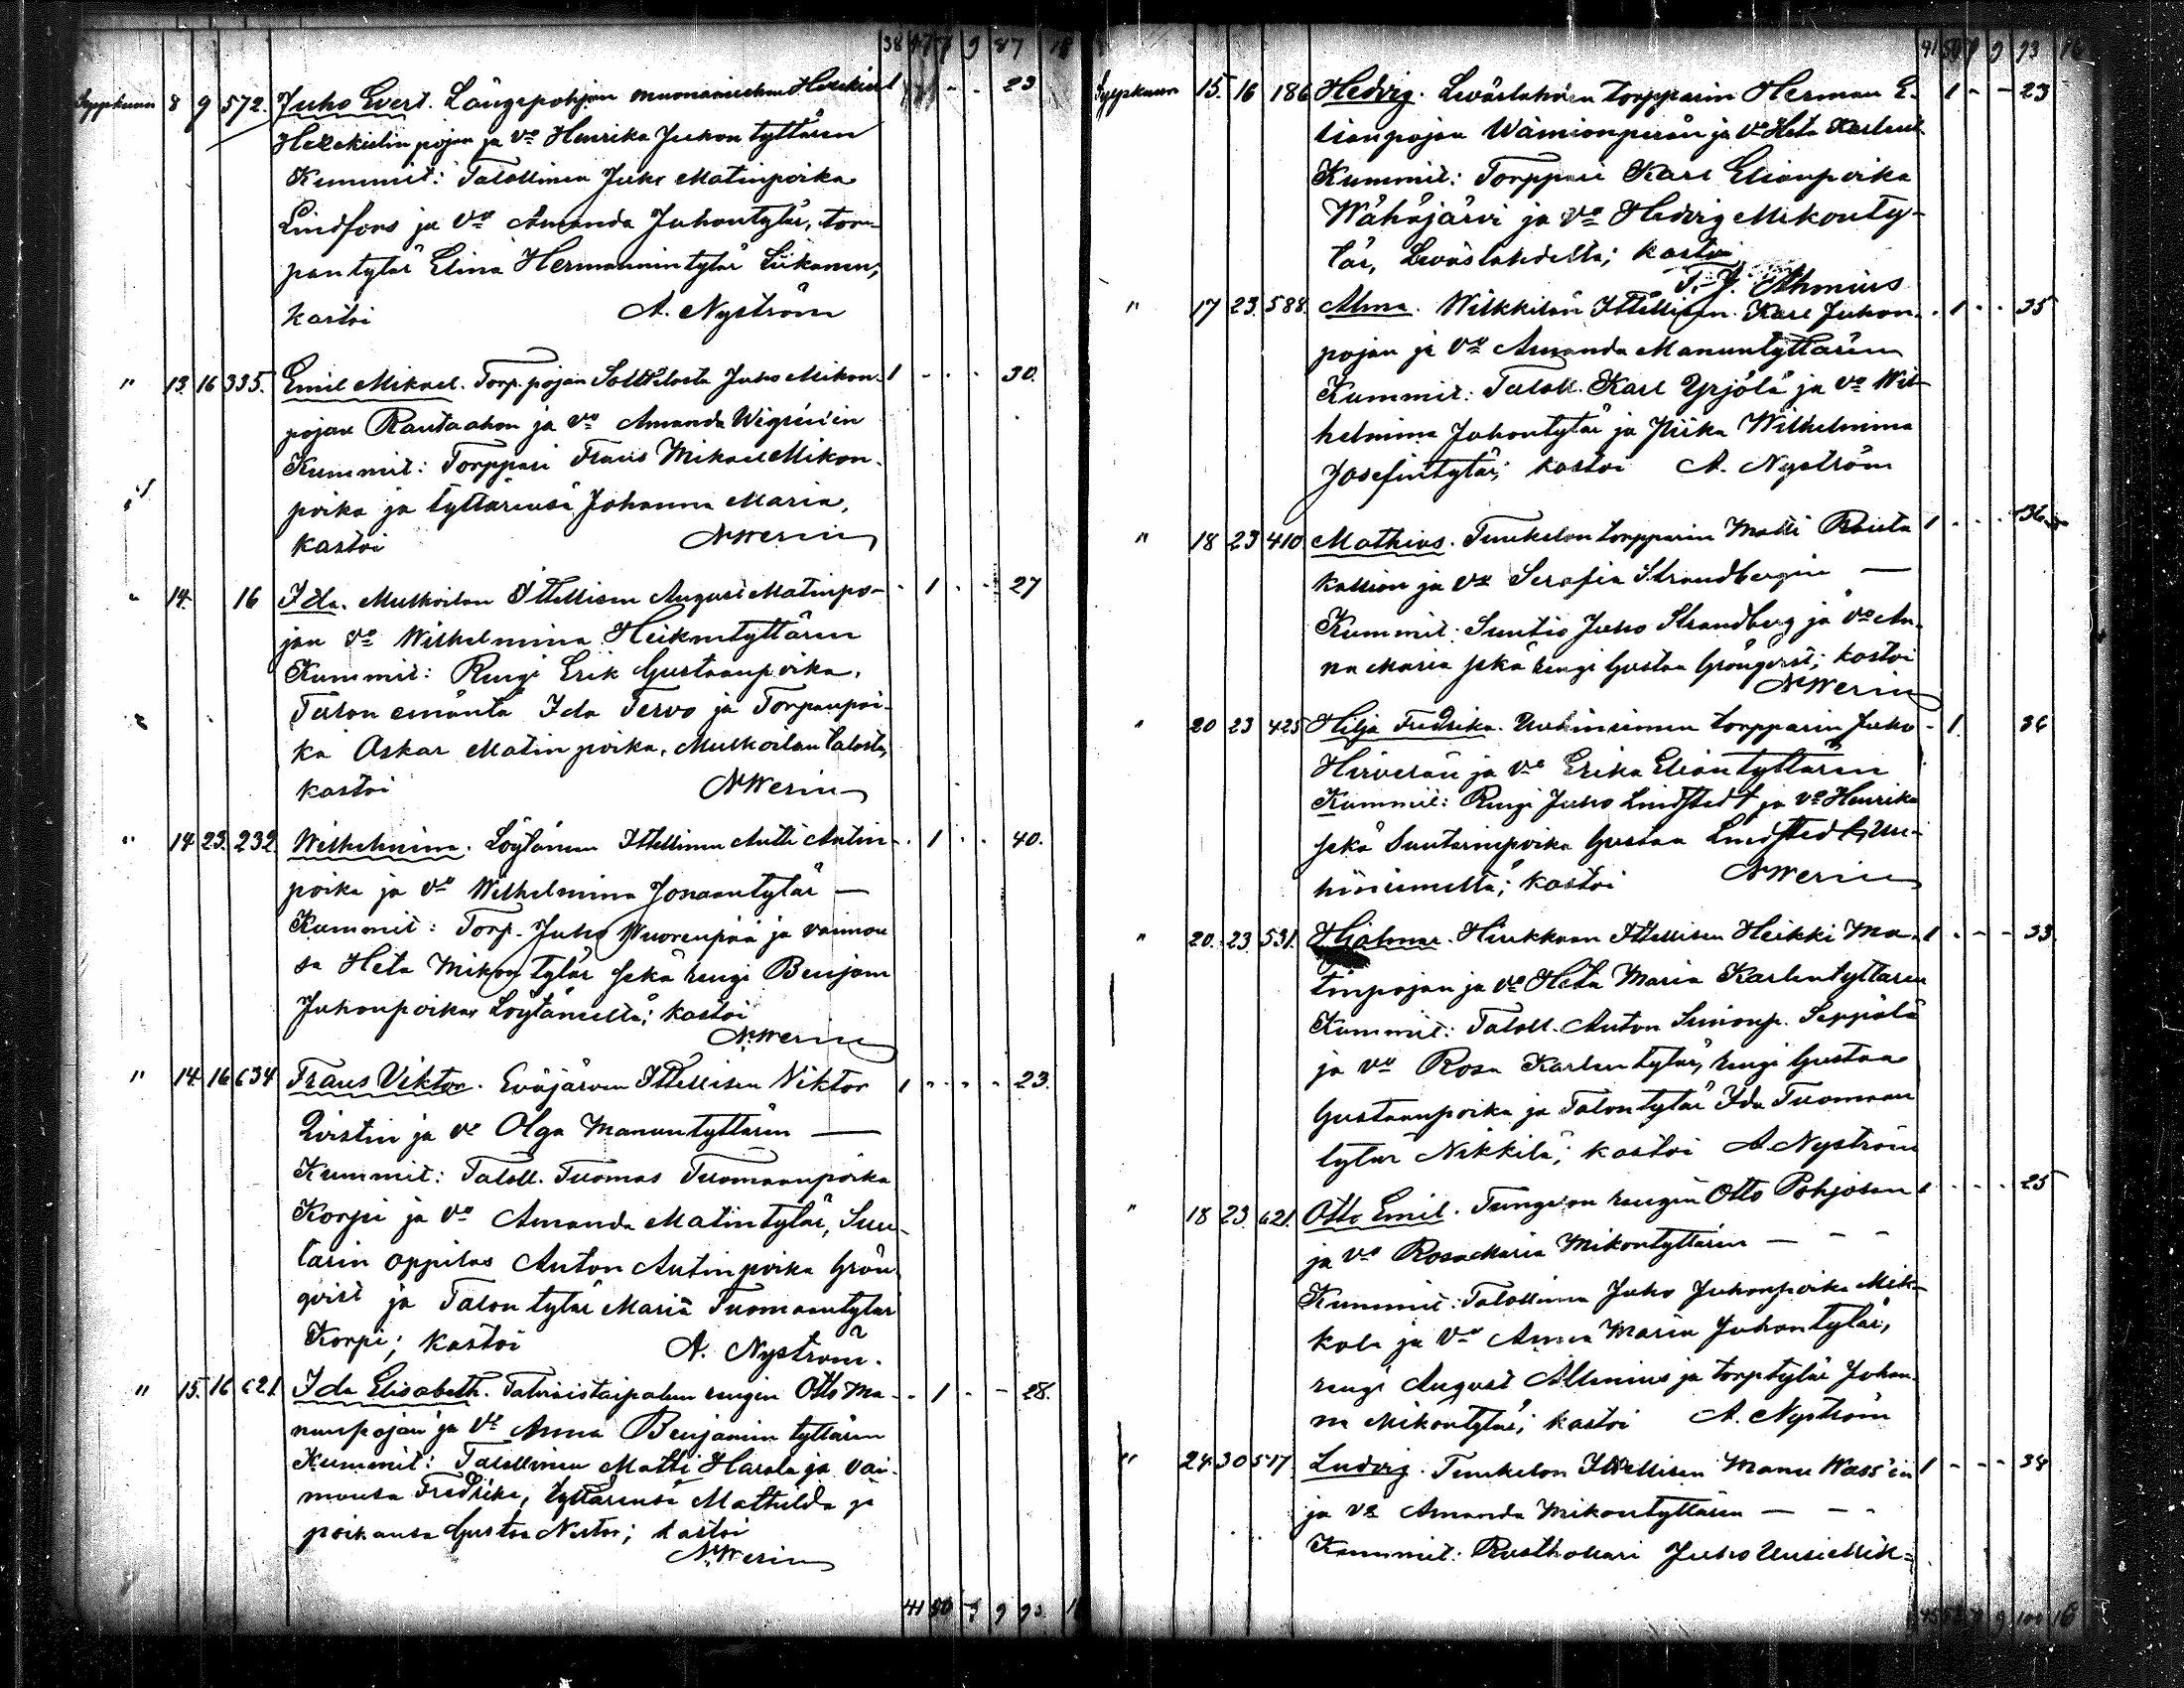 38 47 7 9 87 18
Syyskuun 8 9 572. Juho Evert. Långpohjan muonamiehen Heskiel 1 - - 23
Heskielin pojan ja vo Henrika Juhon tyttären
Kummit: Talollinen Juho Matinpoika
Lindfors ja vo Amanda Juhontytär, tor-
pantytär Elina Hermannintytär Siikanen;
kastoi A. Nyström
" 13. 16 335. Emil Mikael. Torp. pojan Juho Mikon- 1 - - - 30.
pojan Rautaahon ja vo Amanda Wigrén'in
Kummit: Torppari Frans Mikael Mikon-
poika ja tyttärensä Johanna Maria,
kastoi N Werin
" 14. 16 Ida. Mulkoilan Itsellisen August Matinpo- - 1 - - 27
jan vo Wilhelmina Heikintyttären
Kummit: Rengi Erik Gustaanpoika,
Talon emäntä Ida Tervo ja Torpanpoi-
ka Oskar Matinpoika, Mulkoilan talosta,
kastoi N Werin
" 14. 23. 232. Wilhelmina. Löytänen Itsellinen Antti Antin- - 1 - - 40.
poika ja vo Wilhelmina Jonaantytär —
Kummit: Torp. Juho Wuorenpää ja vaimon
sa Heta Mikontytär sekä rengi Benjam
Juhonpoika Löytäneeltä; kastoi
N Werin
" 14. 16 634 Frans Viktor. Eväjärven Itsellisen Viktor 1 - - - 23.
Qvistin ja vo Olga Manuntyttären —
Kummit: Taloll. Tuomas Tuomaanpoika
Korpi ja vo Amanda Matintytär, Suu-
tarin oppilas Anton Antinpoika Grön-
qvist ja Talontytär Maria Tuomaantytär
Korpi; kastoi A. Nyström.
" 15. 16 621. Ida Elisabeth. Talviaistaipaleen rengin Otto Ma- - 1 - - 28.
nunpojan ja vo Anna Benjamin tyttären
Kummit: Talollinen Matti Harala ja vai-
monsa Fredrika, tyttärensä Mathilda ja
poikansa Gustaa Nestor; kastoi
N Werin
41 50 7 9 93. 18
41 50 7 9 93 16
Syyskuun 15. 16 186 Hedvig. Leväslahden torpparin Herman E- 1 - - 23
lianpojan Wämionperän ja vo Heta
Kummit: Torppari Karl Elianpoika
Wähäjärvi ja vo Hedvig Mikonty-
tär, Leväslahdelta; kastoi
" 17 23. 588. Alma. Wilkkilän Itsellisen Karl Juhon- - 1 - - 35
pojan ja vo Amanda Manuntyttären
Kummit: Taloll. Karl Yrjölä ja vo Wil-
helmina Juhontytär ja Piika Wilhelmina
Josefintytär; kastoi A. Nyström
" 18 23 410 Mathias. Tunkelon torpparin Matti Rauta 1 - - - 36
kallion ja vo Serafia Strandbergin —
Kummit: Suntio Juho Strandberg ja vo An-
na Maria sekä rengi Gustaa Grönqvist; kastoi
N Werin
" 20 23 425 Hilja Fredrika. torpparin Juho - 1. 36
Hirvelän ja vo Erika Eliantyttären
Kummit: Rengi Juho Lindstedt ja vo Henrika
sekä Suutarinpoika Gustaa Lindstedt
kastoi N Werin
" 20. 23 531. Hjalmar. Hirkkaan Itsellisen Heikki Ma- 1 - - - 33.
tinpojan ja vo Heta Maria Karlentyttären
Kummit: Taloll. Anton Simonp. Seppälä
ja vo Rosa Karlentytär, rengi Gustaa
Gustaanpoika ja Talontytär Ida Tuomaan
tytär Nikkilä; kastoi A. Nyström
" 18 23. 621. Otto Emil. rengin Otto Pohjosen 1 - - - 25
ja vo Rosa Maria Mikontyttären — — —
Kummit: Talollinen Juho Juhonpoika Mik-
kola ja vo Anna Maria Juhontytär,
rengi August Allenius ja torptytär Johan-
na Mikontytär; kastoi A. Nyström
" 24 30 517 Ludvig. Tunkelon Itsellisen Manu Wass'in 1 - - - 38
ja vo Amanda Mikontyttären — — -
Kummit: Rusthollari Juho Uusi Mik-
45 7 9 100 16